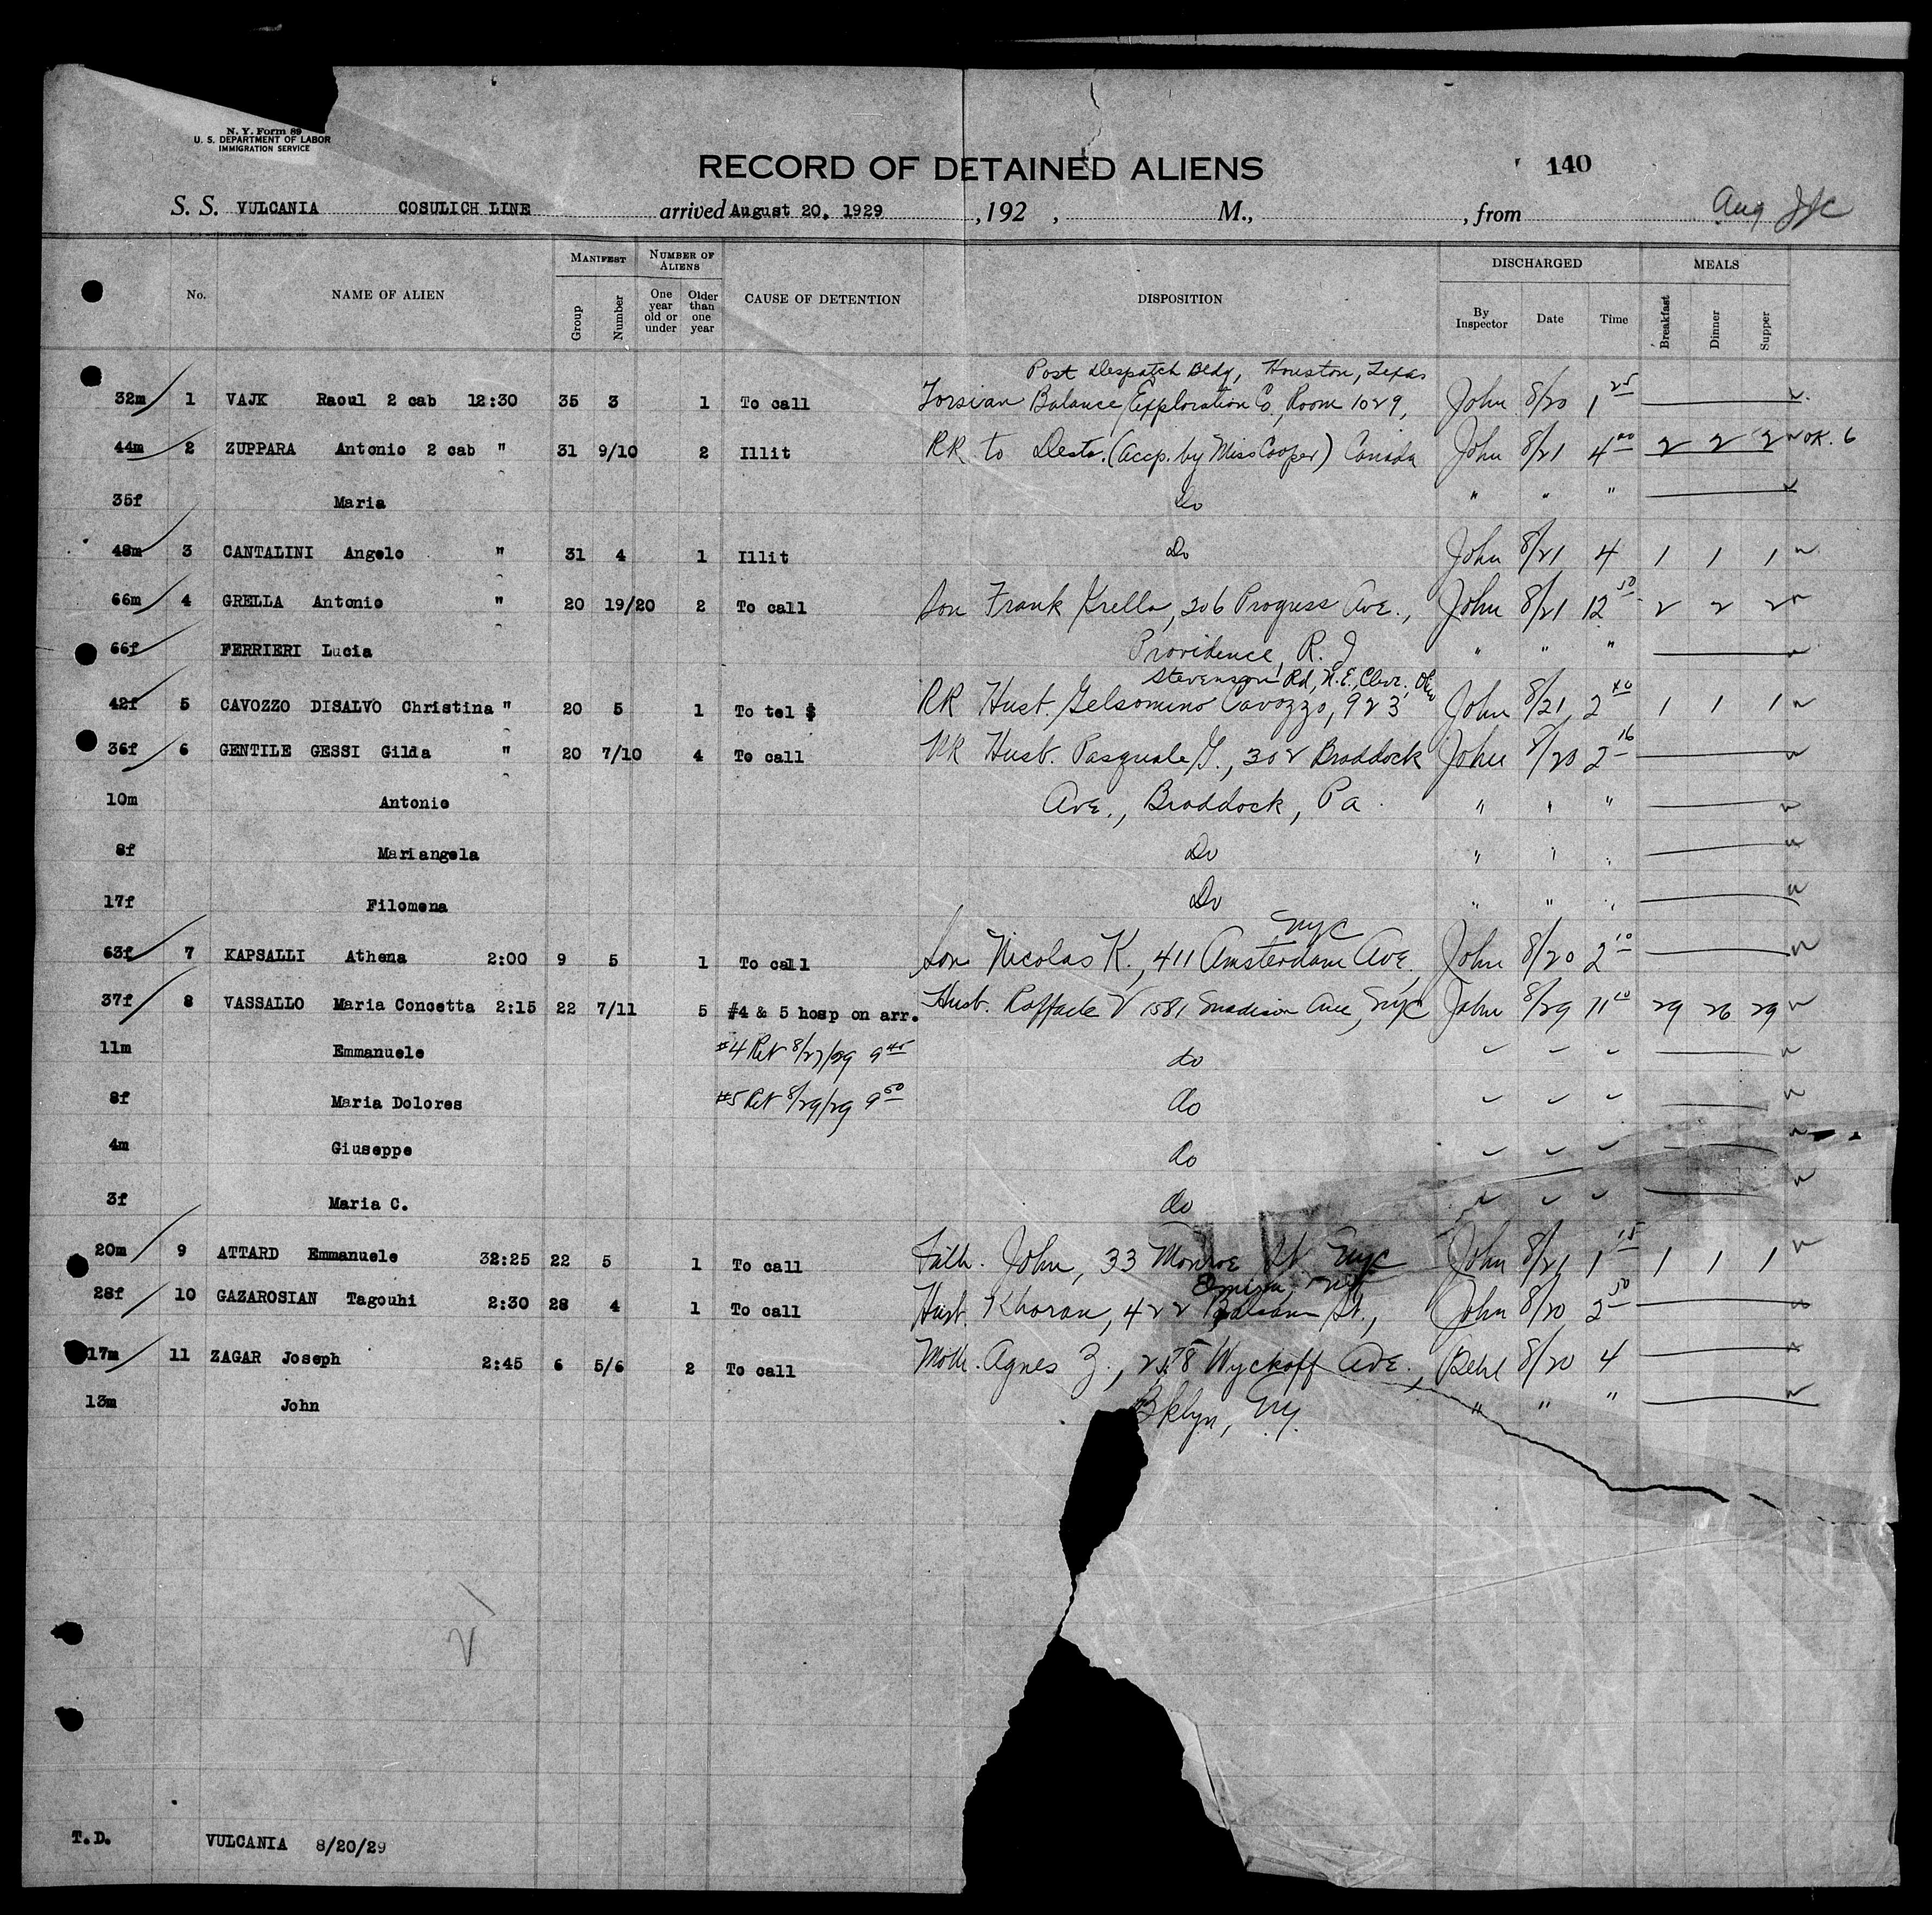 N. Y. Form 89
U. S. DEPARTMENT OF LABOR
IMMIGRATION SERVICE
RECORD OF DETAINED ALIENS 140
S. S. VULCANIA COSULICH LINE arrived August 20, 1929 , 192 , M., , from Aug
MANIFEST NUMBER OF ALIENS DISCHARGED MEALS
No. NAME OF ALIEN Group Number One year old or under Older than one year CAUSE OF DETENTION DISPOSITION By Inspector Date Time Breakfast Dinner Supper
Post Despatch Bldg, Houston, Texas
32m 1 VAJK Raoul 2 cab 12:30 35 3 1 To call Torsian Balance Exploration Co., Room 1029, John 8/20 1 25
44m 2 ZUPPARA Antonio 2 cab " 31 9/10 2 Illit RR to Destn. (accp. by Miss Cooper) Canada John 8/21 4 00 2 2 2 OK. 6
35f Maria Do " " "
48m 3 CANTALINI Angelo " 31 4 1 Illit Do John 8/21 4 1 1 1
66m 4 GRELLA Antonio " 20 19/20 2 To call Son Frank Grella, 206 Progress Ave., John 8/21 12 50 2 2 2
66f FERRIERI Lucia Providence, R. I " " "
Stevenson Rd, N.E., Cleve., Ohio
42f 5 CAVOZZO DISALVO Christina " 20 5 1 To tel $ RR Hust. Gelsomino Cavozzo, 923 John 8/21 2 40 1 1 1
36f 6 GENTILE GESSI Gilda " 20 7/10 4 To call RR Husb. Pasquale G., 302 Braddock John 8/20 2 16
10m Antonio Ave., Braddock, Pa. " " "
8f Mariangela Do " " "
17f Filomena Do " " "
NYC
63f 7 KAPSALLI Athena 2:00 9 5 1 To call Son Nicolas K., 411 Amsterdam Ave. John 8/20 2 10
37f 8 VASSALLO Maria Concetta 2:15 22 7/11 5 #4 & 5 hosp on arr. Husb. Raffaele V 1581 Madison Ave, NYC John 8/29 11 29 26 29
11m Emmanuele #4 Ret 8/27/29 9 45 do
8f Maria Dolores #5 Ret 8/29/29 9 50 do
4m Giuseppe do
3f Maria C. do
20m 9 ATTARD Emmanuele 32:25 22 5 1 To call Fath. John, 33 Monroe St NYC John 8/21 1 15 1 1 1
28f 10 GAZAROSIAN Tagouhi 2:30 28 4 1 To call Hust. Khoran, 422 St., John 8/20 2 50
17m 11 ZAGAR Joseph 2:45 6 5/6 2 To call Moth. Agnes Z., Wyckoff Ave., 8/20 4
13m John Bklyn, NY. " " "
T.D. VULCANIA 8/20/29